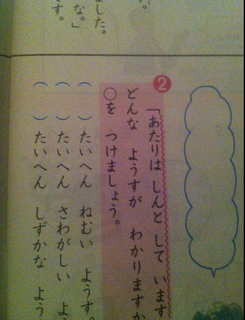 す。
な。」
ました。
❷ 「あたりは しんと して います
どんな ようすが わかりますか
○を つけましょう。
( ) たいへん ねむい ようす。
( ) たいへん さわがしい よ
( ) たいへん しずかな よう